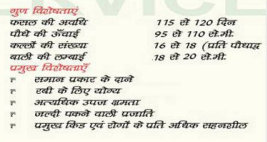 गुण विशेषताएं
फसल की अवधि 115 से 120 दिन
पौधे की ऊँचाई 95 से 110 से.मी.
कल्लों की संख्या 16 से 18 (प्रति पौधाद्ध
बाली की लम्बाई 18 से 20 से.मी.
प्रमुख विशेषताएँ
r समान प्रकार के दाने
r रबी के लिए योग्य
r अत्यधिक उपज क्षमता
r जल्दी पकने वाली प्रजाति
r प्रमुख किड़ एवं रोगों के प्रति अधिक सहनशील